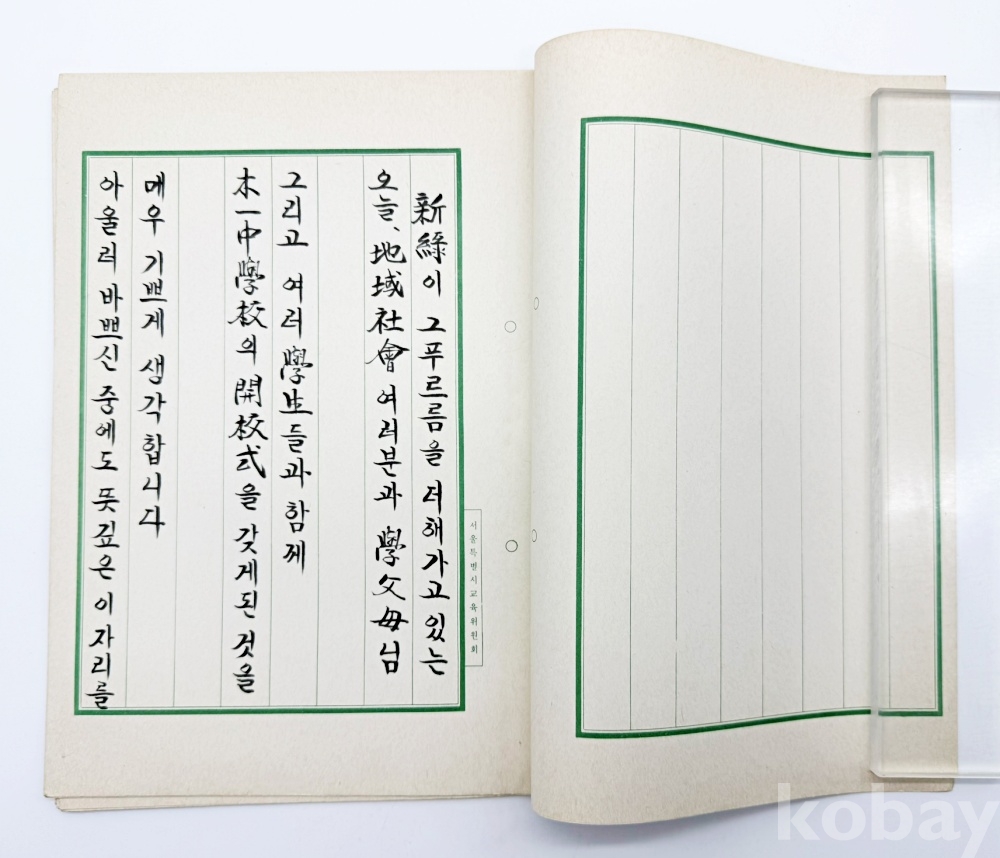 新綠이 그 푸르름을 더해가고 있는
오늘、地域社會 여러분과 學父母님
그리고 여러 學生들과 함께
木一中學校의 開校式을 갖게된 것을
매우 기쁘게 생각합니다
아울러 바쁘신 중에도 뜻깊은 이 자리를
서울특별시교육위원회
kobay